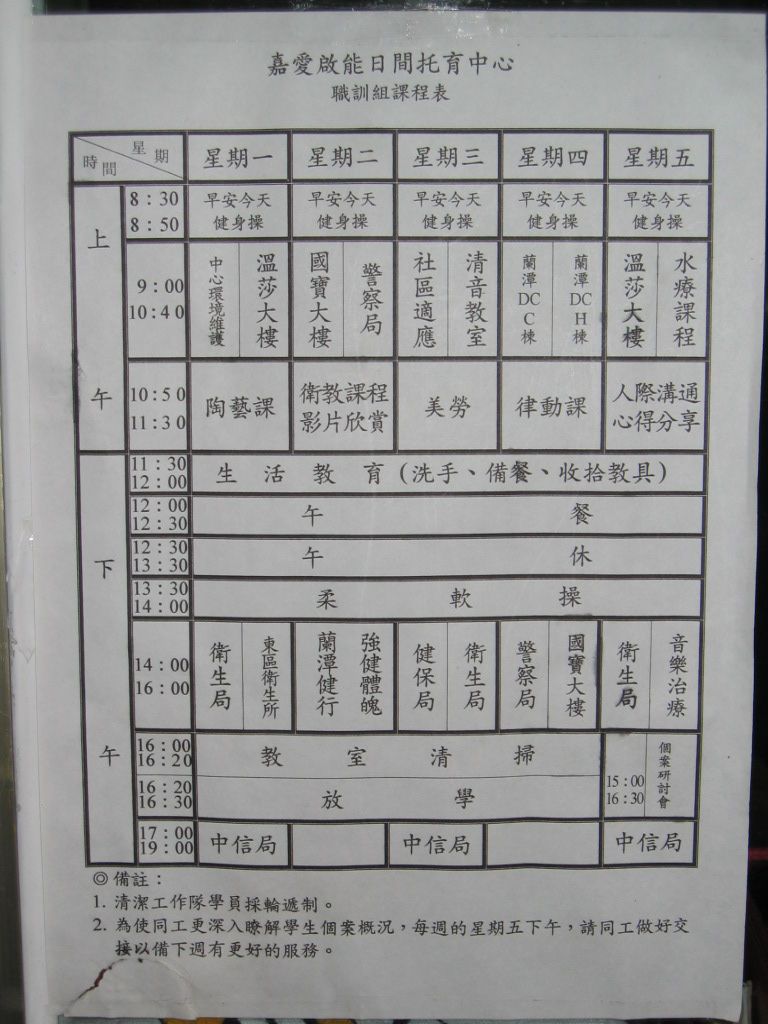 嘉愛啟能日間托育中心
職訓組課程表
星期
時間
星期一 星期二 星期三 星期四 星期五
上午
8：30
8：50
早安今天 早安今天 早安今天 早安今天 早安今天
健身操 健身操 健身操 健身操 健身操
9：00
10：40
中心環境維護
溫莎大樓
國寶大樓
警察局
社區適應
清音教室
蘭潭DCC棟
蘭潭DCH棟
溫莎大樓
水療課程
10：50
11：30
陶藝課
衛教課程
影片欣賞
美勞
律動課
人際溝通
心得分享
下午
11：30
12：00
生活教育(洗手、備餐、收拾教具)
12：00
12：30
午餐
12：30
13：30
午休
13：30
14：00
柔軟操
14：00
16：00
衛生局
東區衛生所
蘭潭健行
強健體魄
健保局
衛生局
警察局
國寶大樓
衛生局
音樂治療
16：00
16：20
教室清掃
16：20
16：30
放學
15：00
16：30
個案研討會
17：00
19：00
中信局 中信局 中信局
◎備註：
1. 清潔工作隊學員採輪遞制。
2. 為使同工更深入瞭解學生個案概況，每週的星期五下午，請同工做好交
接以備下週有更好的服務。